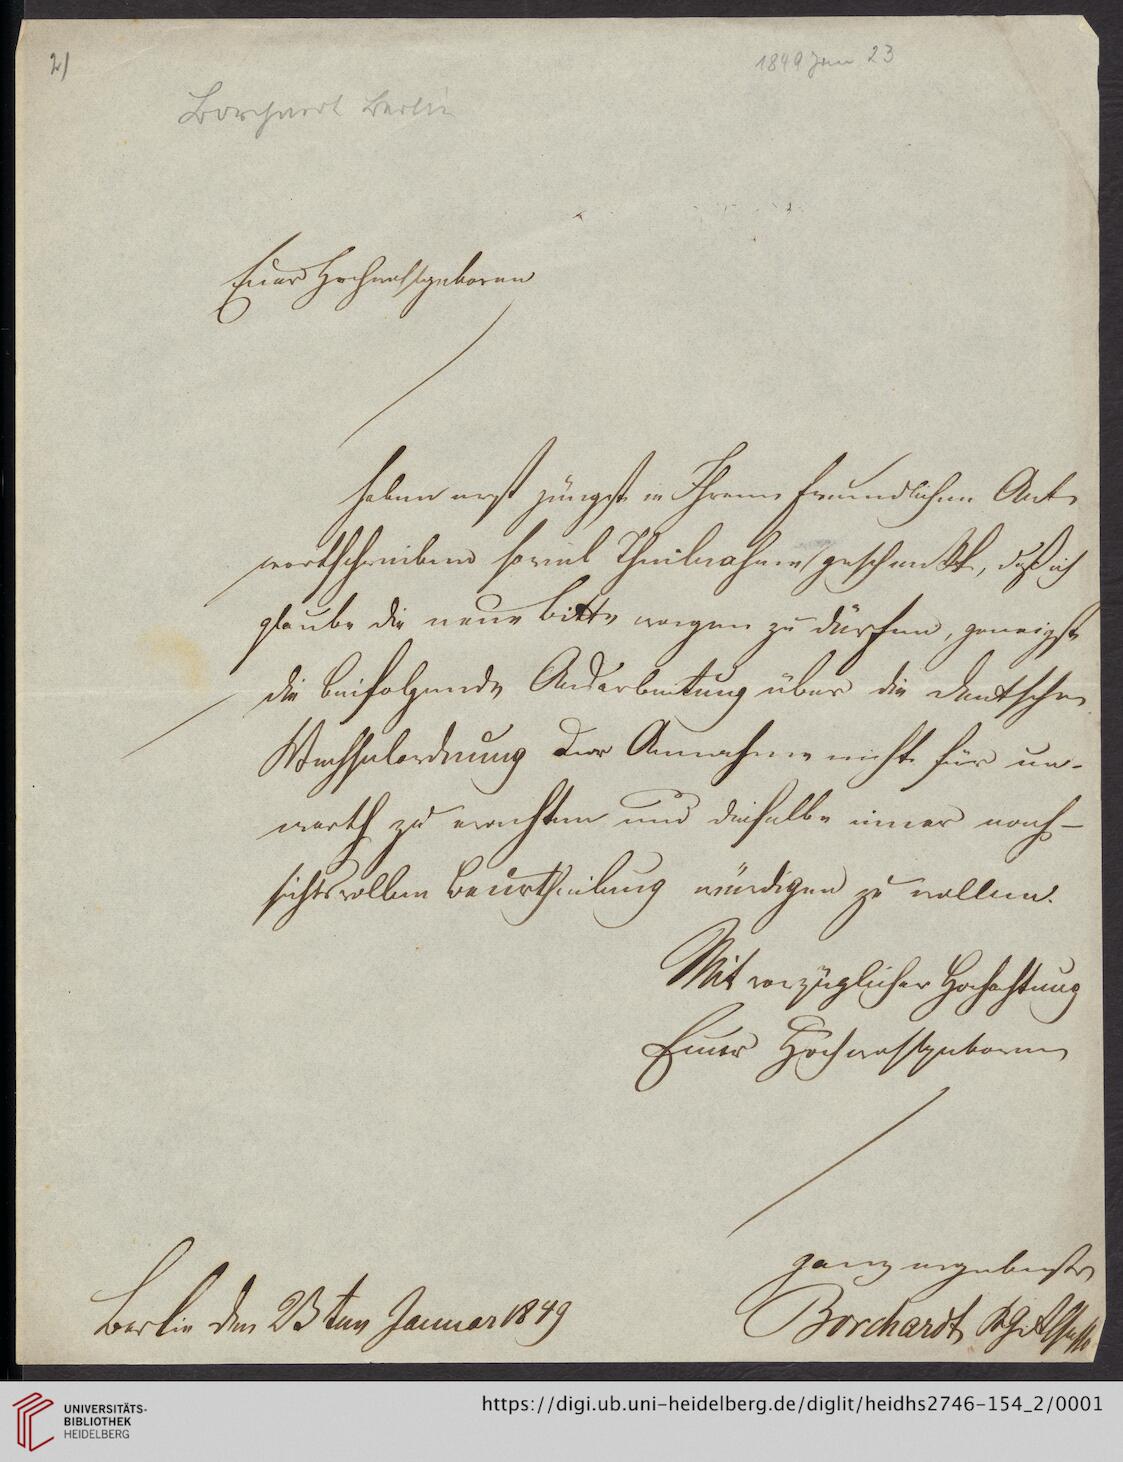 2)
1849 Jan 23
Borchardt Berlin
Euer Hochwohlgeboren
haben erst jüngst in Ihrem freundlichen Ant-
wortschreiben soviel Theilnahme geschenkt, daß ich
glaube die neue Bitte wagen zu dürfen, geneigtest
die beifolgende Ausarbeitung über die deutsche
Wechselordnung der Annahme nicht für un-
werth zu erachten und dieselbe einer nach-
sichtsvollen Beurtheilung würdigen zu wollen.
Mit vorzüglicher Hochachtung
Euer Hochwohlgeboren
ganz ergebenster
Berlin den 23ten Januar 1849
Borchardt
UNIVERSITÄTS-
BIBLIOTHEK
HEIDELBERG
https://digi.ub.uni-heidelberg.de/diglit/heidhs2746-154_2/0001